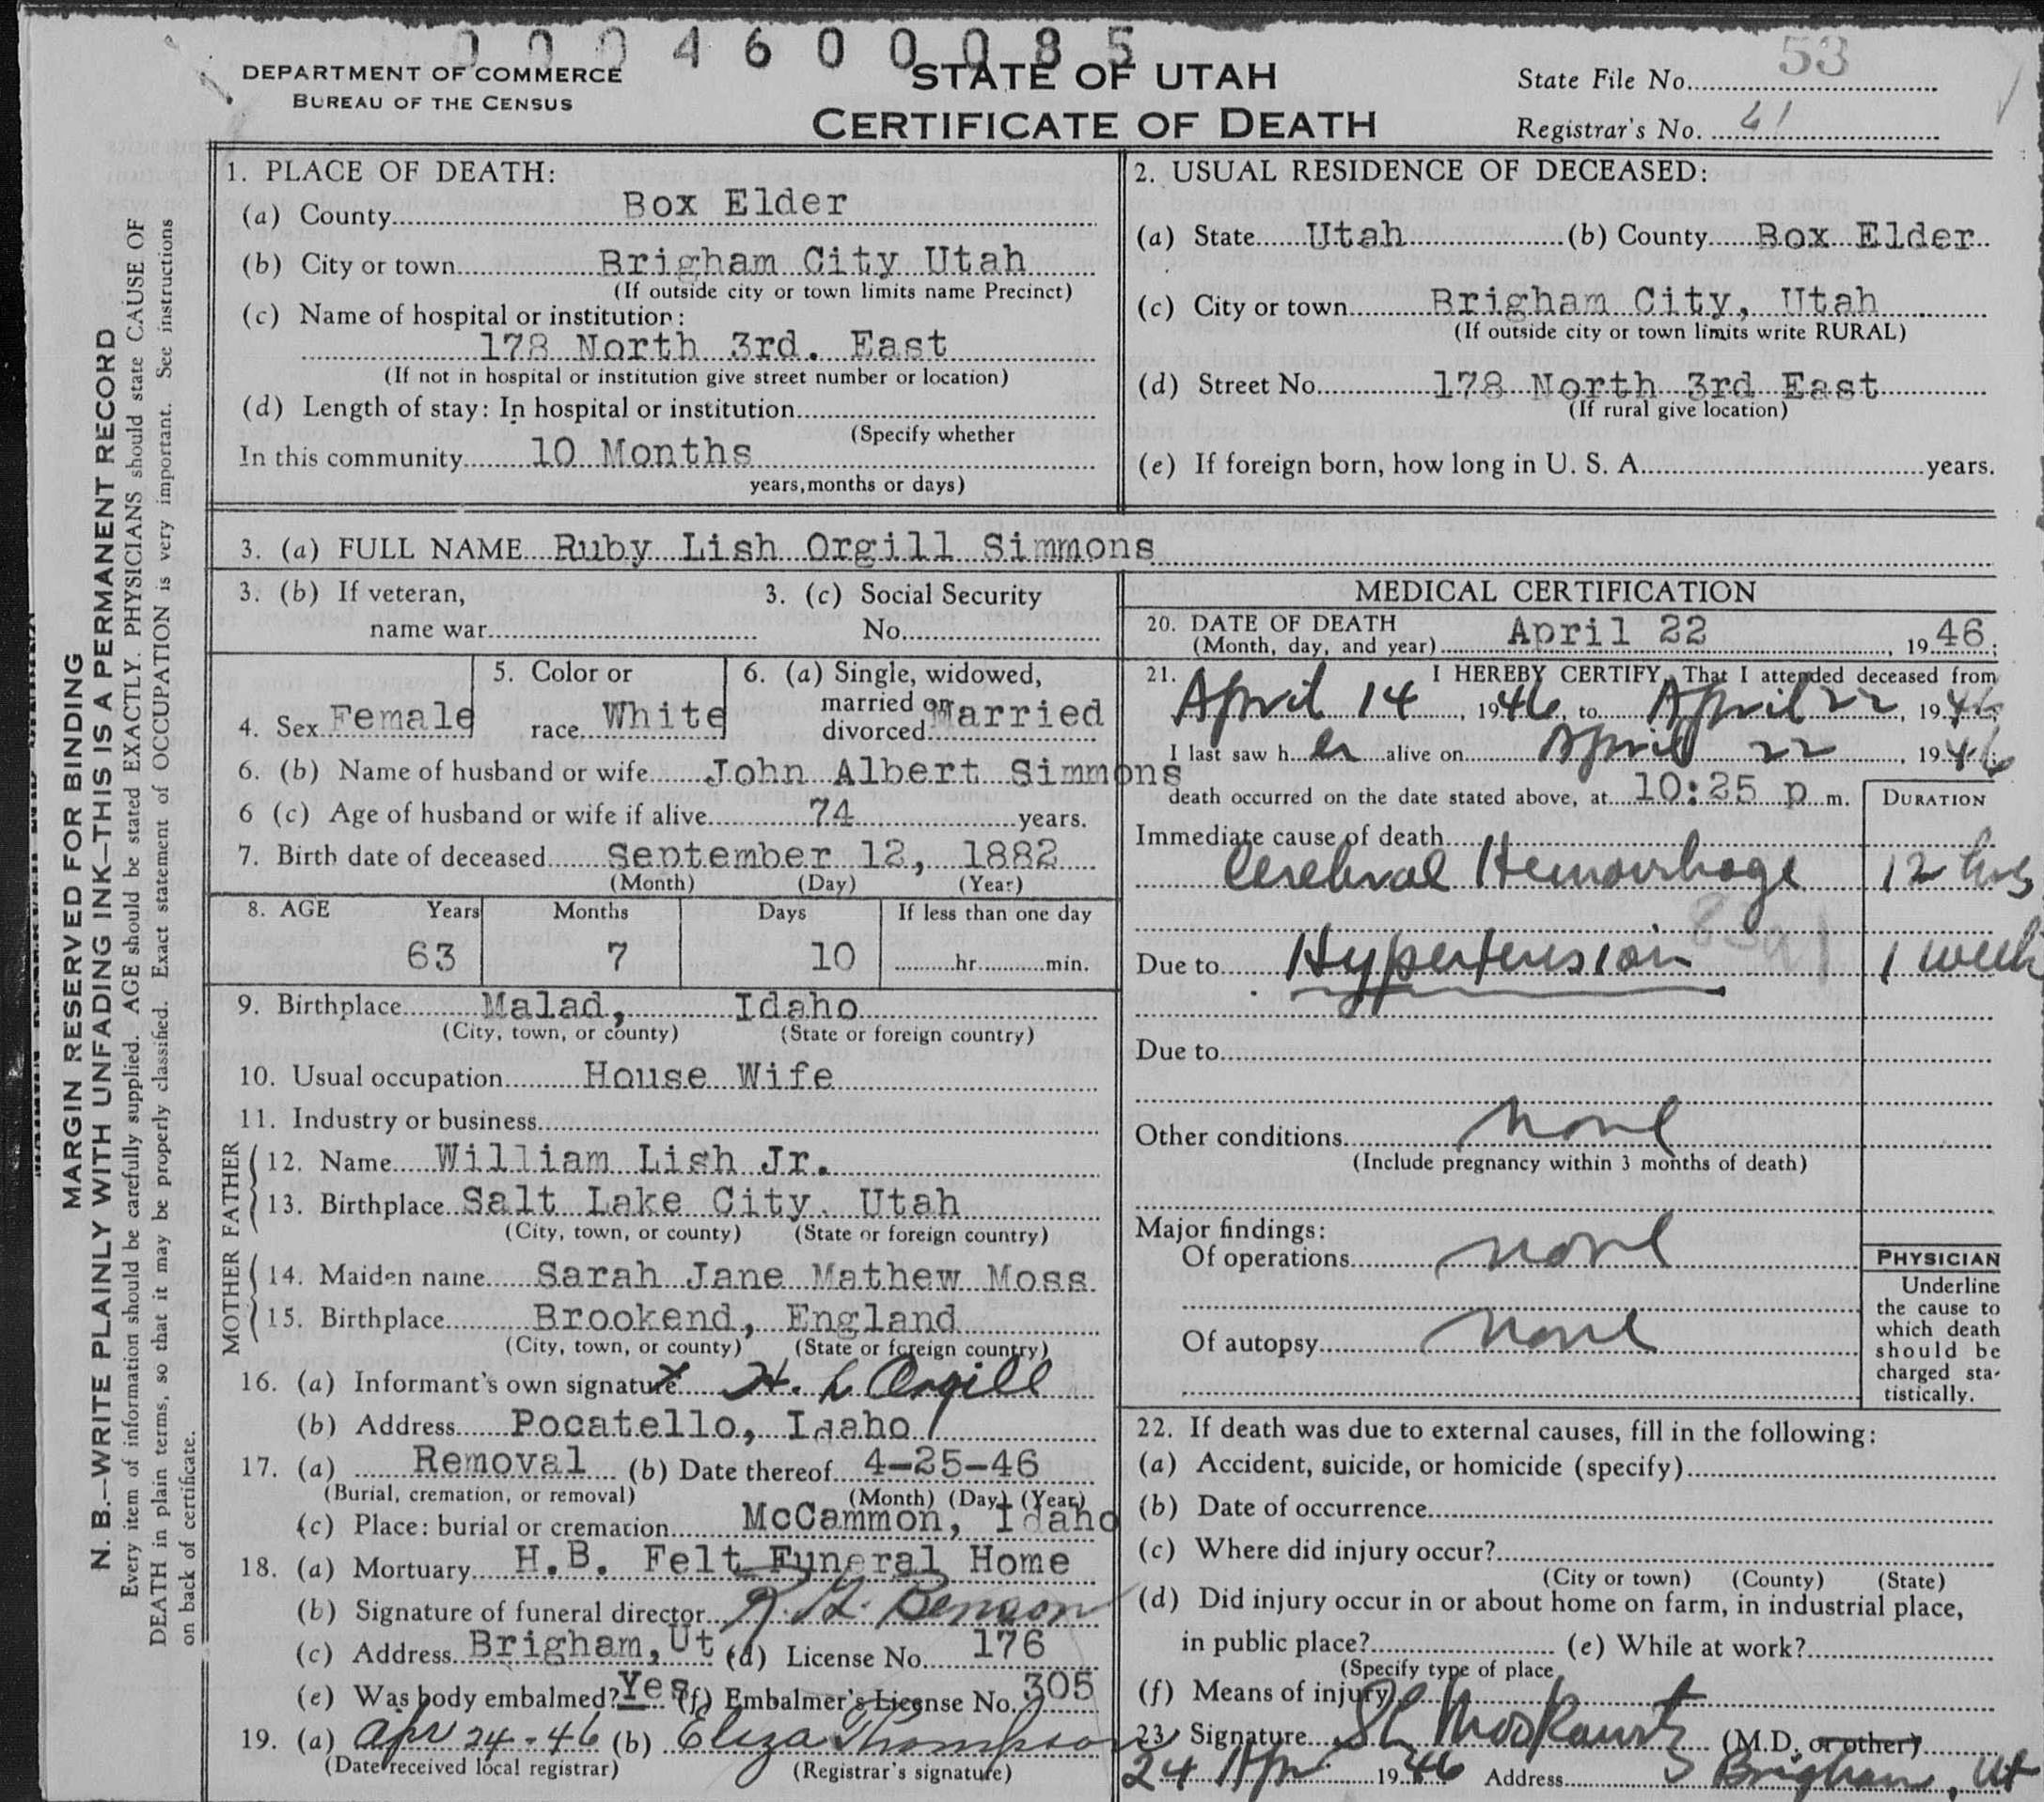 0 0 0 4 6 0 0 0 8 5
DEPARTMENT OF COMMERCE
BUREAU OF THE CENSUS
STATE OF UTAH
CERTIFICATE OF DEATH
State File No. 53
Registrar's No. 41
MARGIN RESERVED FOR BINDING
N. B.—WRITE PLAINLY WITH UNFADING INK—THIS IS A PERMANENT RECORD
Every item of information should be carefully supplied. AGE should be stated EXACTLY. PHYSICIANS should state CAUSE OF
DEATH in plain terms, so that it may be properly classified. Exact statement of OCCUPATION is very important. See instructions
on back of certificate.
1. PLACE OF DEATH:
(a) County Box Elder
(b) City or town Brigham City Utah
(If outside city or town limits name Precinct)
(c) Name of hospital or institution:
178 North 3rd. East
(If not in hospital or institution give street number or location)
(d) Length of stay: In hospital or institution
(Specify whether
In this community 10 Months
years, months or days)
2. USUAL RESIDENCE OF DECEASED:
(a) State Utah (b) County Box Elder
(c) City or town Brigham City, Utah
(If outside city or town limits write RURAL)
(d) Street No. 178 North 3rd East
(If rural give location)
(e) If foreign born, how long in U. S. A. years.
3. (a) FULL NAME Ruby Lish Orgill Simmons
3. (b) If veteran,
name war
3. (c) Social Security
No.
4. Sex Female
5. Color or
race White
6. (a) Single, widowed,
married or
divorced Married
6. (b) Name of husband or wife John Albert Simmons
6 (c) Age of husband or wife if alive 74 years.
7. Birth date of deceased September 12, 1882
(Month) (Day) (Year)
8. AGE Years Months Days If less than one day
63 7 10 hr. min.
9. Birthplace Malad, Idaho
(City, town, or county) (State or foreign country)
10. Usual occupation House Wife
11. Industry or business
FATHER
12. Name William Lish Jr.
13. Birthplace Salt Lake City. Utah
(City, town, or county) (State or foreign country)
MOTHER
14. Maiden name Sarah Jane Mathew Moss
15. Birthplace Brookend, England
(City, town, or county) (State or foreign country)
16. (a) Informant's own signature x H. L Orgill
(b) Address Pocatello, Idaho
17. (a) Removal (b) Date thereof 4-25-46
(Burial, cremation, or removal) (Month) (Day) (Year)
(c) Place: burial or cremation McCammon, Idaho
18. (a) Mortuary H.B. Felt Funeral Home
(b) Signature of funeral director Benson
(c) Address Brigham, Ut (d) License No. 176
(e) Was body embalmed? Yes (f) Embalmer's License No. 305
19. (a) Apr 24-46 (b) Eliza Thompson
(Date received local registrar) (Registrar's signature)
MEDICAL CERTIFICATION
20. DATE OF DEATH
(Month, day, and year) April 22, 1946;
21. I HEREBY CERTIFY, That I attended deceased from
April 14, 1946, to April 22, 1946
I last saw her alive on April 22, 1946;
death occurred on the date stated above, at 10:25 p m.
DURATION
Immediate cause of death
Cerebral Hemorrhage 12 hrs
83a
Due to Hypertension 1 week
Due to
Other conditions none
(Include pregnancy within 3 months of death)
Major findings:
Of operations none
Of autopsy none
PHYSICIAN
Underline
the cause to
which death
should be
charged sta-
tistically.
22. If death was due to external causes, fill in the following:
(a) Accident, suicide, or homicide (specify)
(b) Date of occurrence
(c) Where did injury occur?
(City or town) (County) (State)
(d) Did injury occur in or about home on farm, in industrial place,
in public place? (e) While at work?
(Specify type of place
(f) Means of injury
23 Signature Moskowitz (M.D. or other)
24 Apr 1946 Address Brigham, Ut